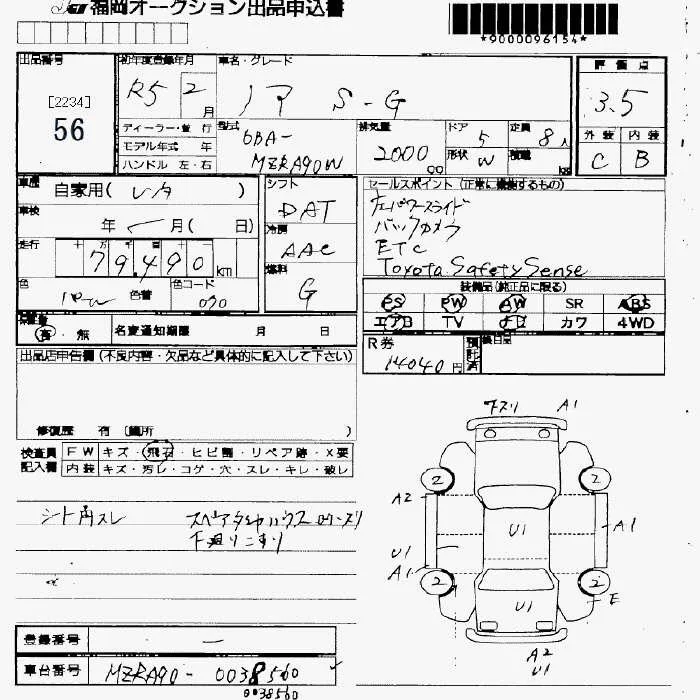 福岡オークション出品申込書
*9000096154*
出品番号
[2234]
56
初年度登録年月
R5 2 月
車名・グレード
ノア S-G
評価点
3.5
外装 内装
C B
ディーラー・並行
モデル年式 年
ハンドル 左・右
型式
6BA-
MZRA90W
排気量
2000 cc
ドア 5
形状 W
定員 8人
積載 kg
車歴
自家用(レンタ)
車検
年 月( 日)
走行
十 万 千 百 十 一
79,490 km
色
色替
色コード
070
シフト
DAT
冷房
AAC
燃料
G
セールスポイント(正常に機能するもの)
バックカメラ
ETC
Toyota Safety Sense
装備品(純正品に限る)
PS PW AW SR ABS
エアB TV ナビ カワ 4WD
保証書
有・無
名変通知期限 月 日
R券
14040円
預託済
後日品
出品店申告欄(不良内容・欠品など具体的に記入して下さい)
修復歴 有(箇所 )
検査員記入欄
FW キズ・飛石・ヒビ割・リペア跡・X要
内装 キズ・汚レ・コゲ・穴・スレ・キレ・破レ
シト角スレ
スペアタイヤハウス
下廻りこすり
A1
2 2
A2
U1
A1
U1
A1
2 2
U1
E
A2
U1
登録番号 —
車台番号 MZRA90-0038560
0038560